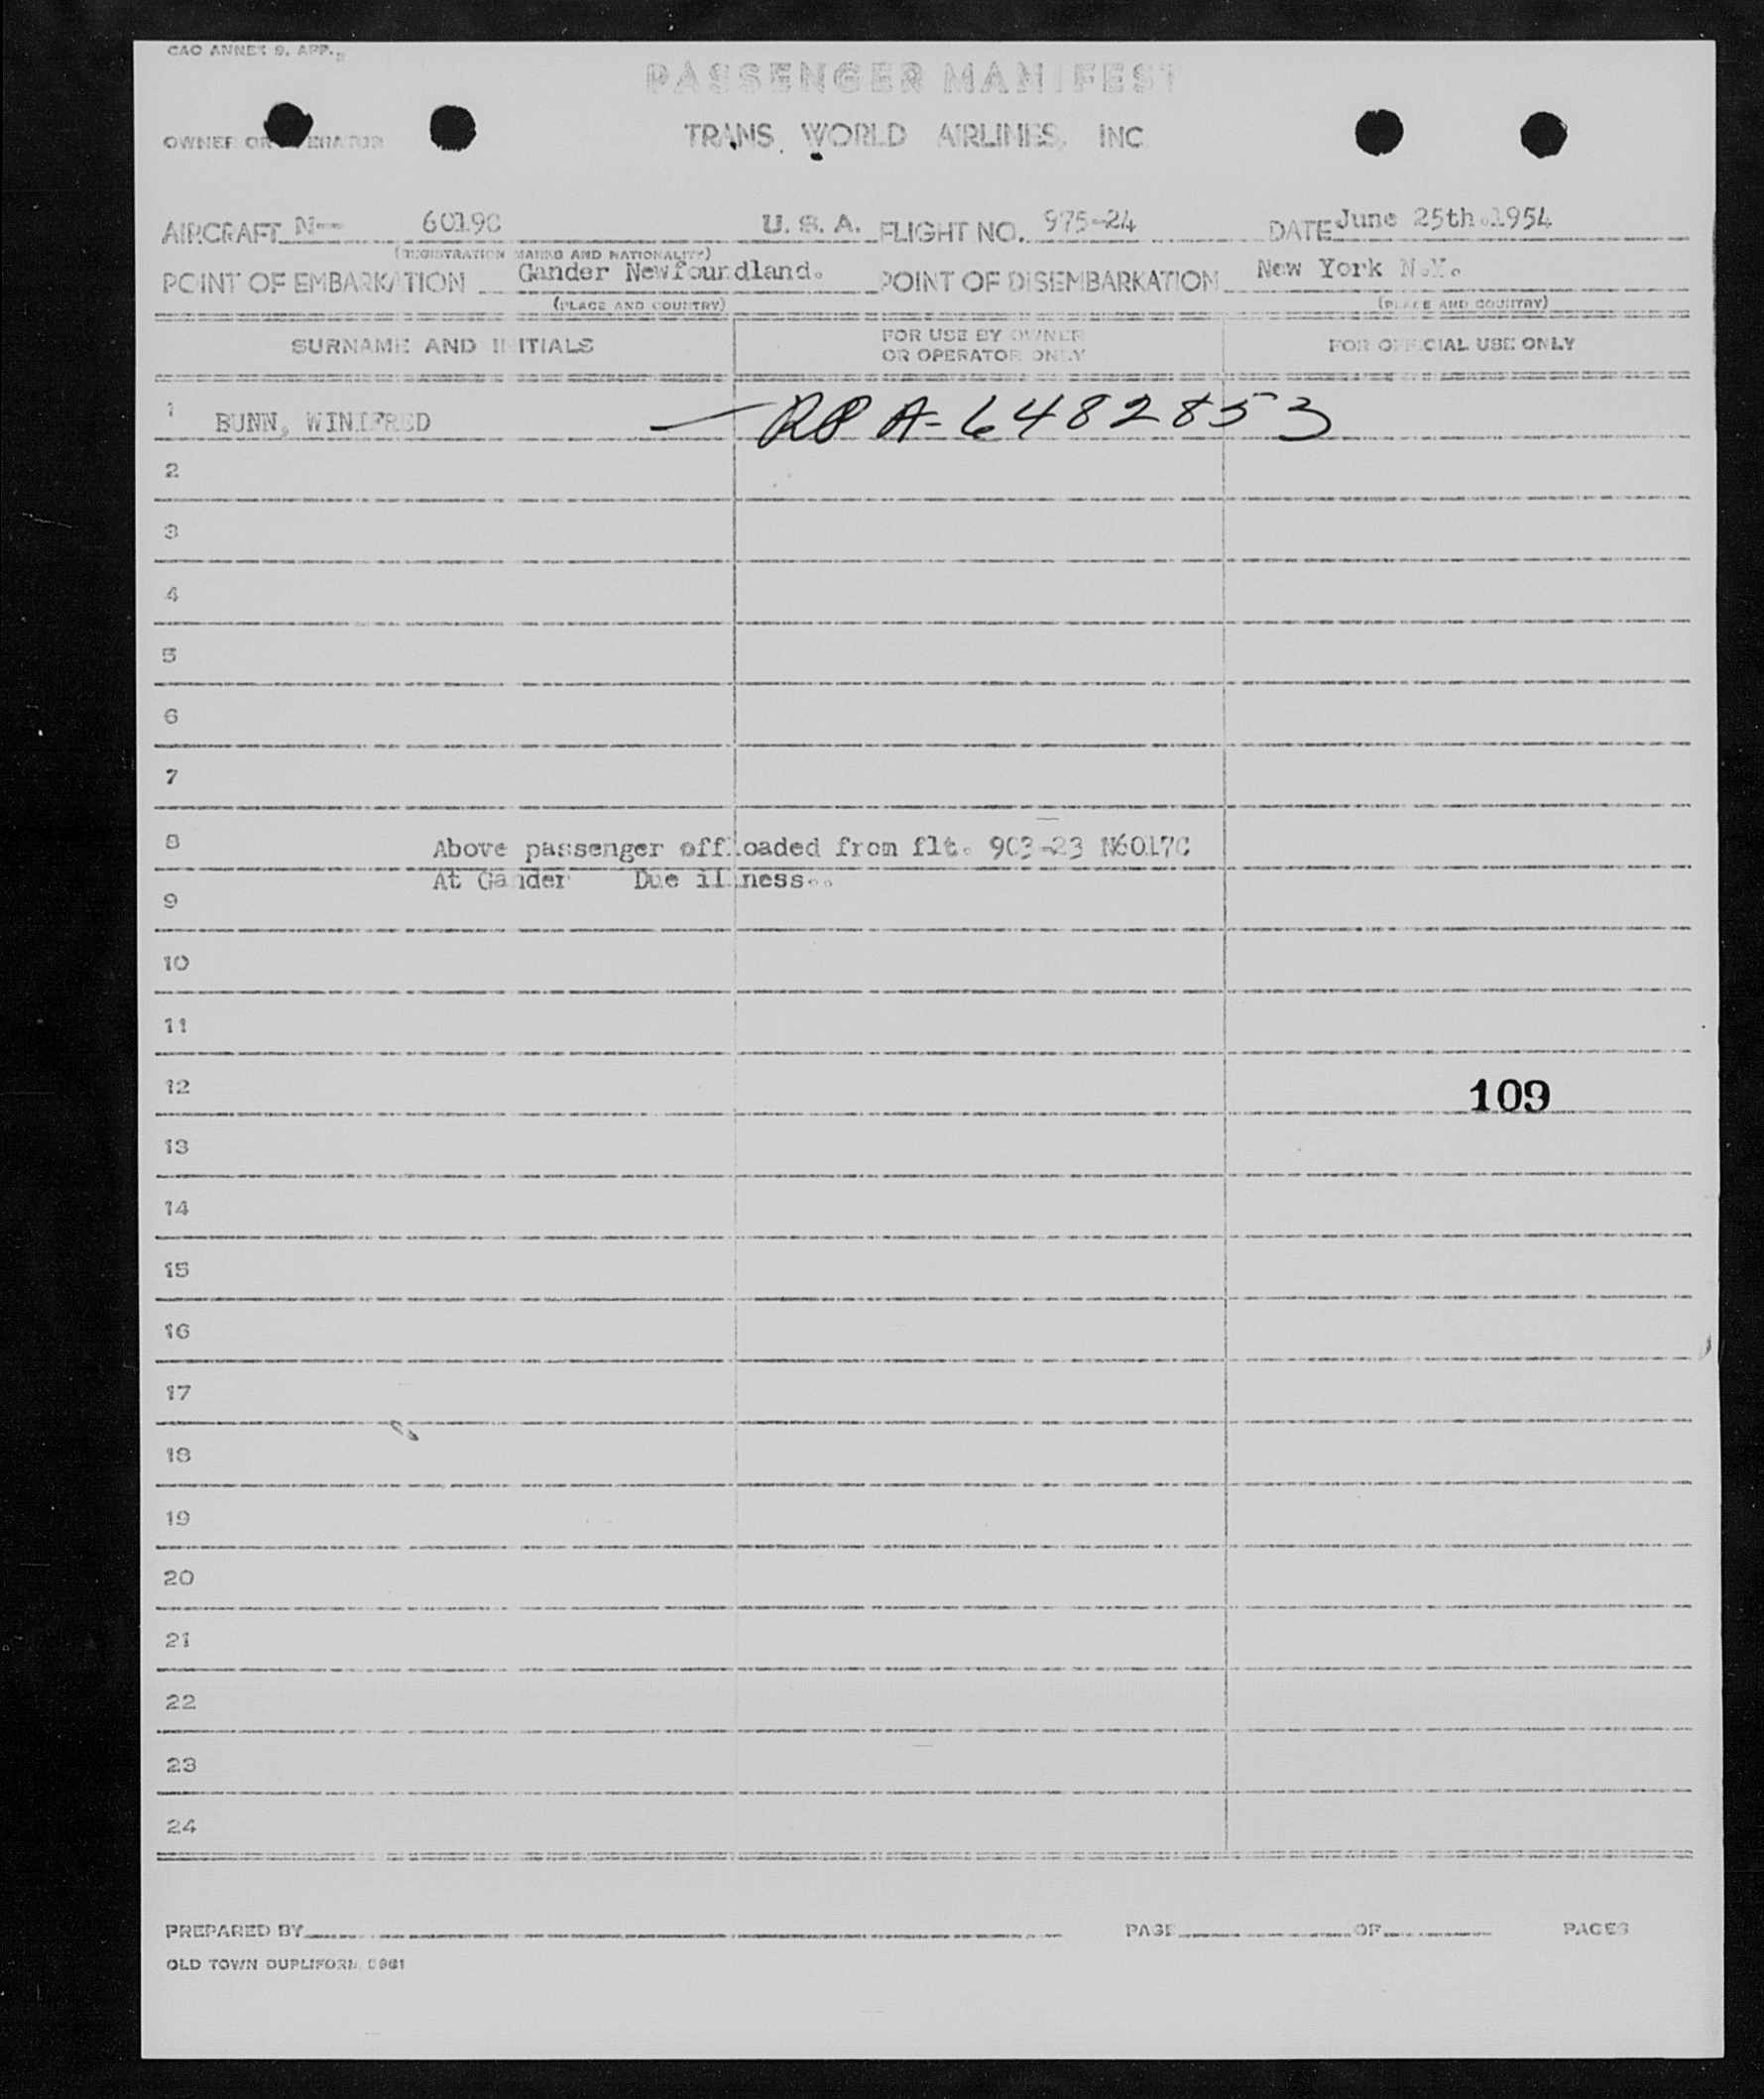 CAO ANNEX 9, APP.
PASSENGER MANIFEST
OWNER OR OPERATOR
TRANS WORLD AIRLINES, INC
AIRCRAFT N-- 6019C U. S. A. FLIGHT NO. 975-24 DATE June 25th.1954
(REGISTRATION MARKS AND NATIONALITY)
POINT OF EMBARKATION Gander Newfoundland. POINT OF DISEMBARKATION New York N.Y.
(PLACE AND COUNTRY) (PLACE AND COUNTRY)
SURNAME AND INITIALS FOR USE BY OWNER OR OPERATOR ONLY FOR OFFICIAL USE ONLY
1 BUNN, WINIFRED — RP A-6482853
2
3
4
5
6
7
8 Above passenger offloaded from flt. 903-23 N6017C
At Gander Due illness..
9
10
11
12 109
13
14
15
16
17
18
19
20
21
22
23
24
PREPARED BY PAGE OF PAGES
OLD TOWN DUPLIFORM